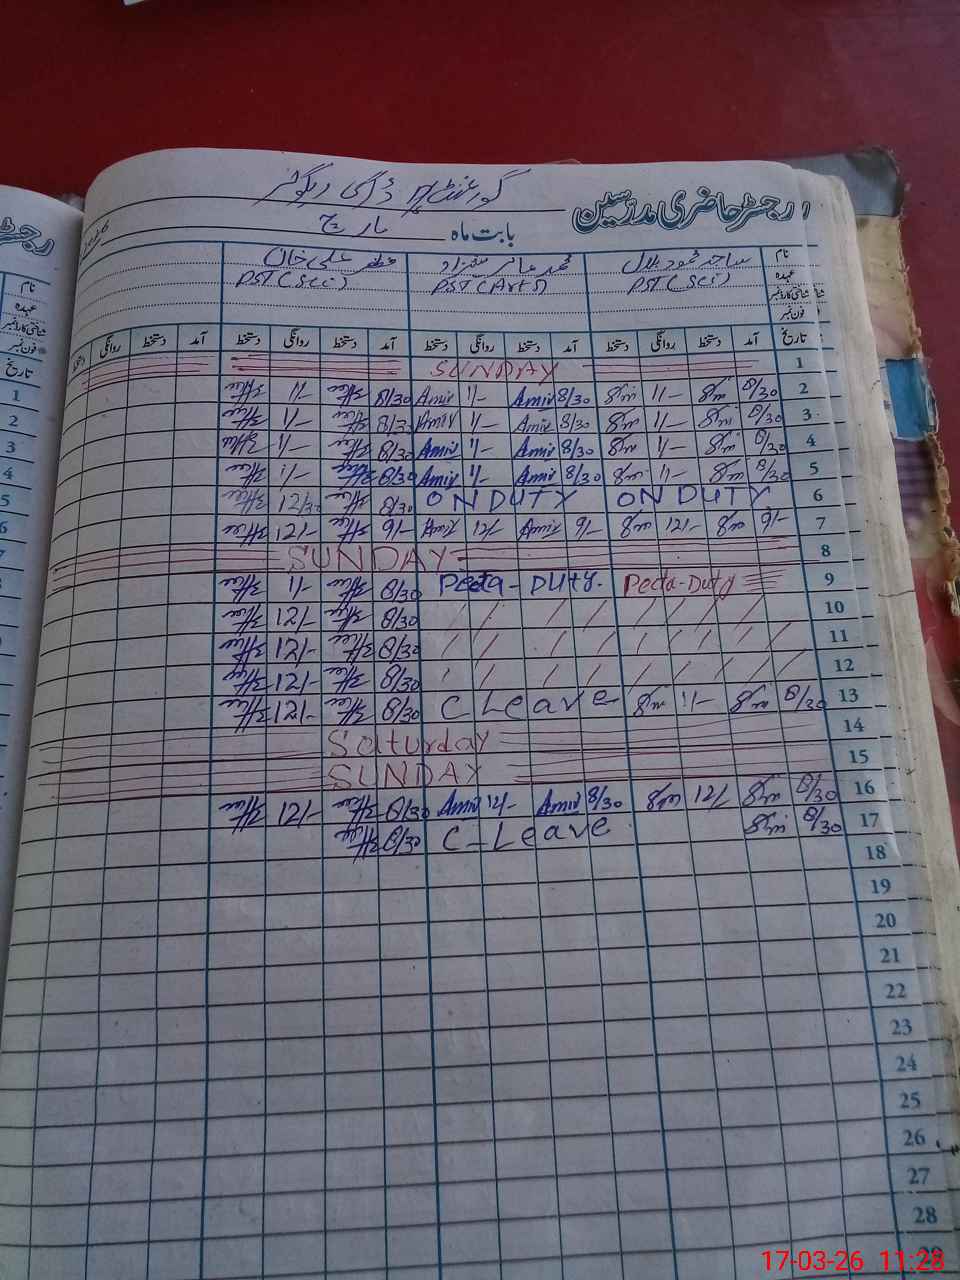 رجسٹر حاضری مدرسین
گورنمنٹ
بابت ماہ مارچ 2026
نام ساجد محمود بلال محمد عامر شہزاد مظہر علی خان
عہدہ PST (Sci) PST (Arts) PST (Sci)
شناختی کارڈ نمبر
فون نمبر
تاریخ آمد دستخط روانگی دستخط آمد دستخط روانگی دستخط آمد دستخط روانگی دستخط آمد دستخط روانگی دستخط
1 SUNDAY
2 8/30 1/- 8/30 Amir 1/- Amir 8/30 1/-
3 8/30 1/- 8/30 Amir 1/- Amir 8/30 1/-
4 8/30 1/- 8/30 Amir 1/- Amir 8/30 1/-
5 8/30 1/- 8/30 Amir 1/- Amir 8/30 1/-
6 ON DUTY ON DUTY 8/30 12/30
7 9/- 12/- 9/- Amir 12/- Amir 9/- 12/-
8 SUNDAY
9 Pecta-Duty Pecta - DUTY. 8/30 1/-
10 / / / / / / / / 8/30 12/-
11 / / / / / / / / 8/30 12/-
12 / / / / / / / / 8/30 12/-
13 8/30 1/- C Leave 8/30 12/-
14 Saturday
15 SUNDAY
16 8/30 12/- 8/30 Amir 12/- Amir 8/30 12/-
17 8/30 C-Leave 8/30
18
19
20
21
22
23
24
25
26
27
28
29
رجسٹر
نام
عہدہ
شناختی کارڈ نمبر
فون نمبر
تاریخ
1
2
3
4
5
6
7
8
9
17-03-26 11:28